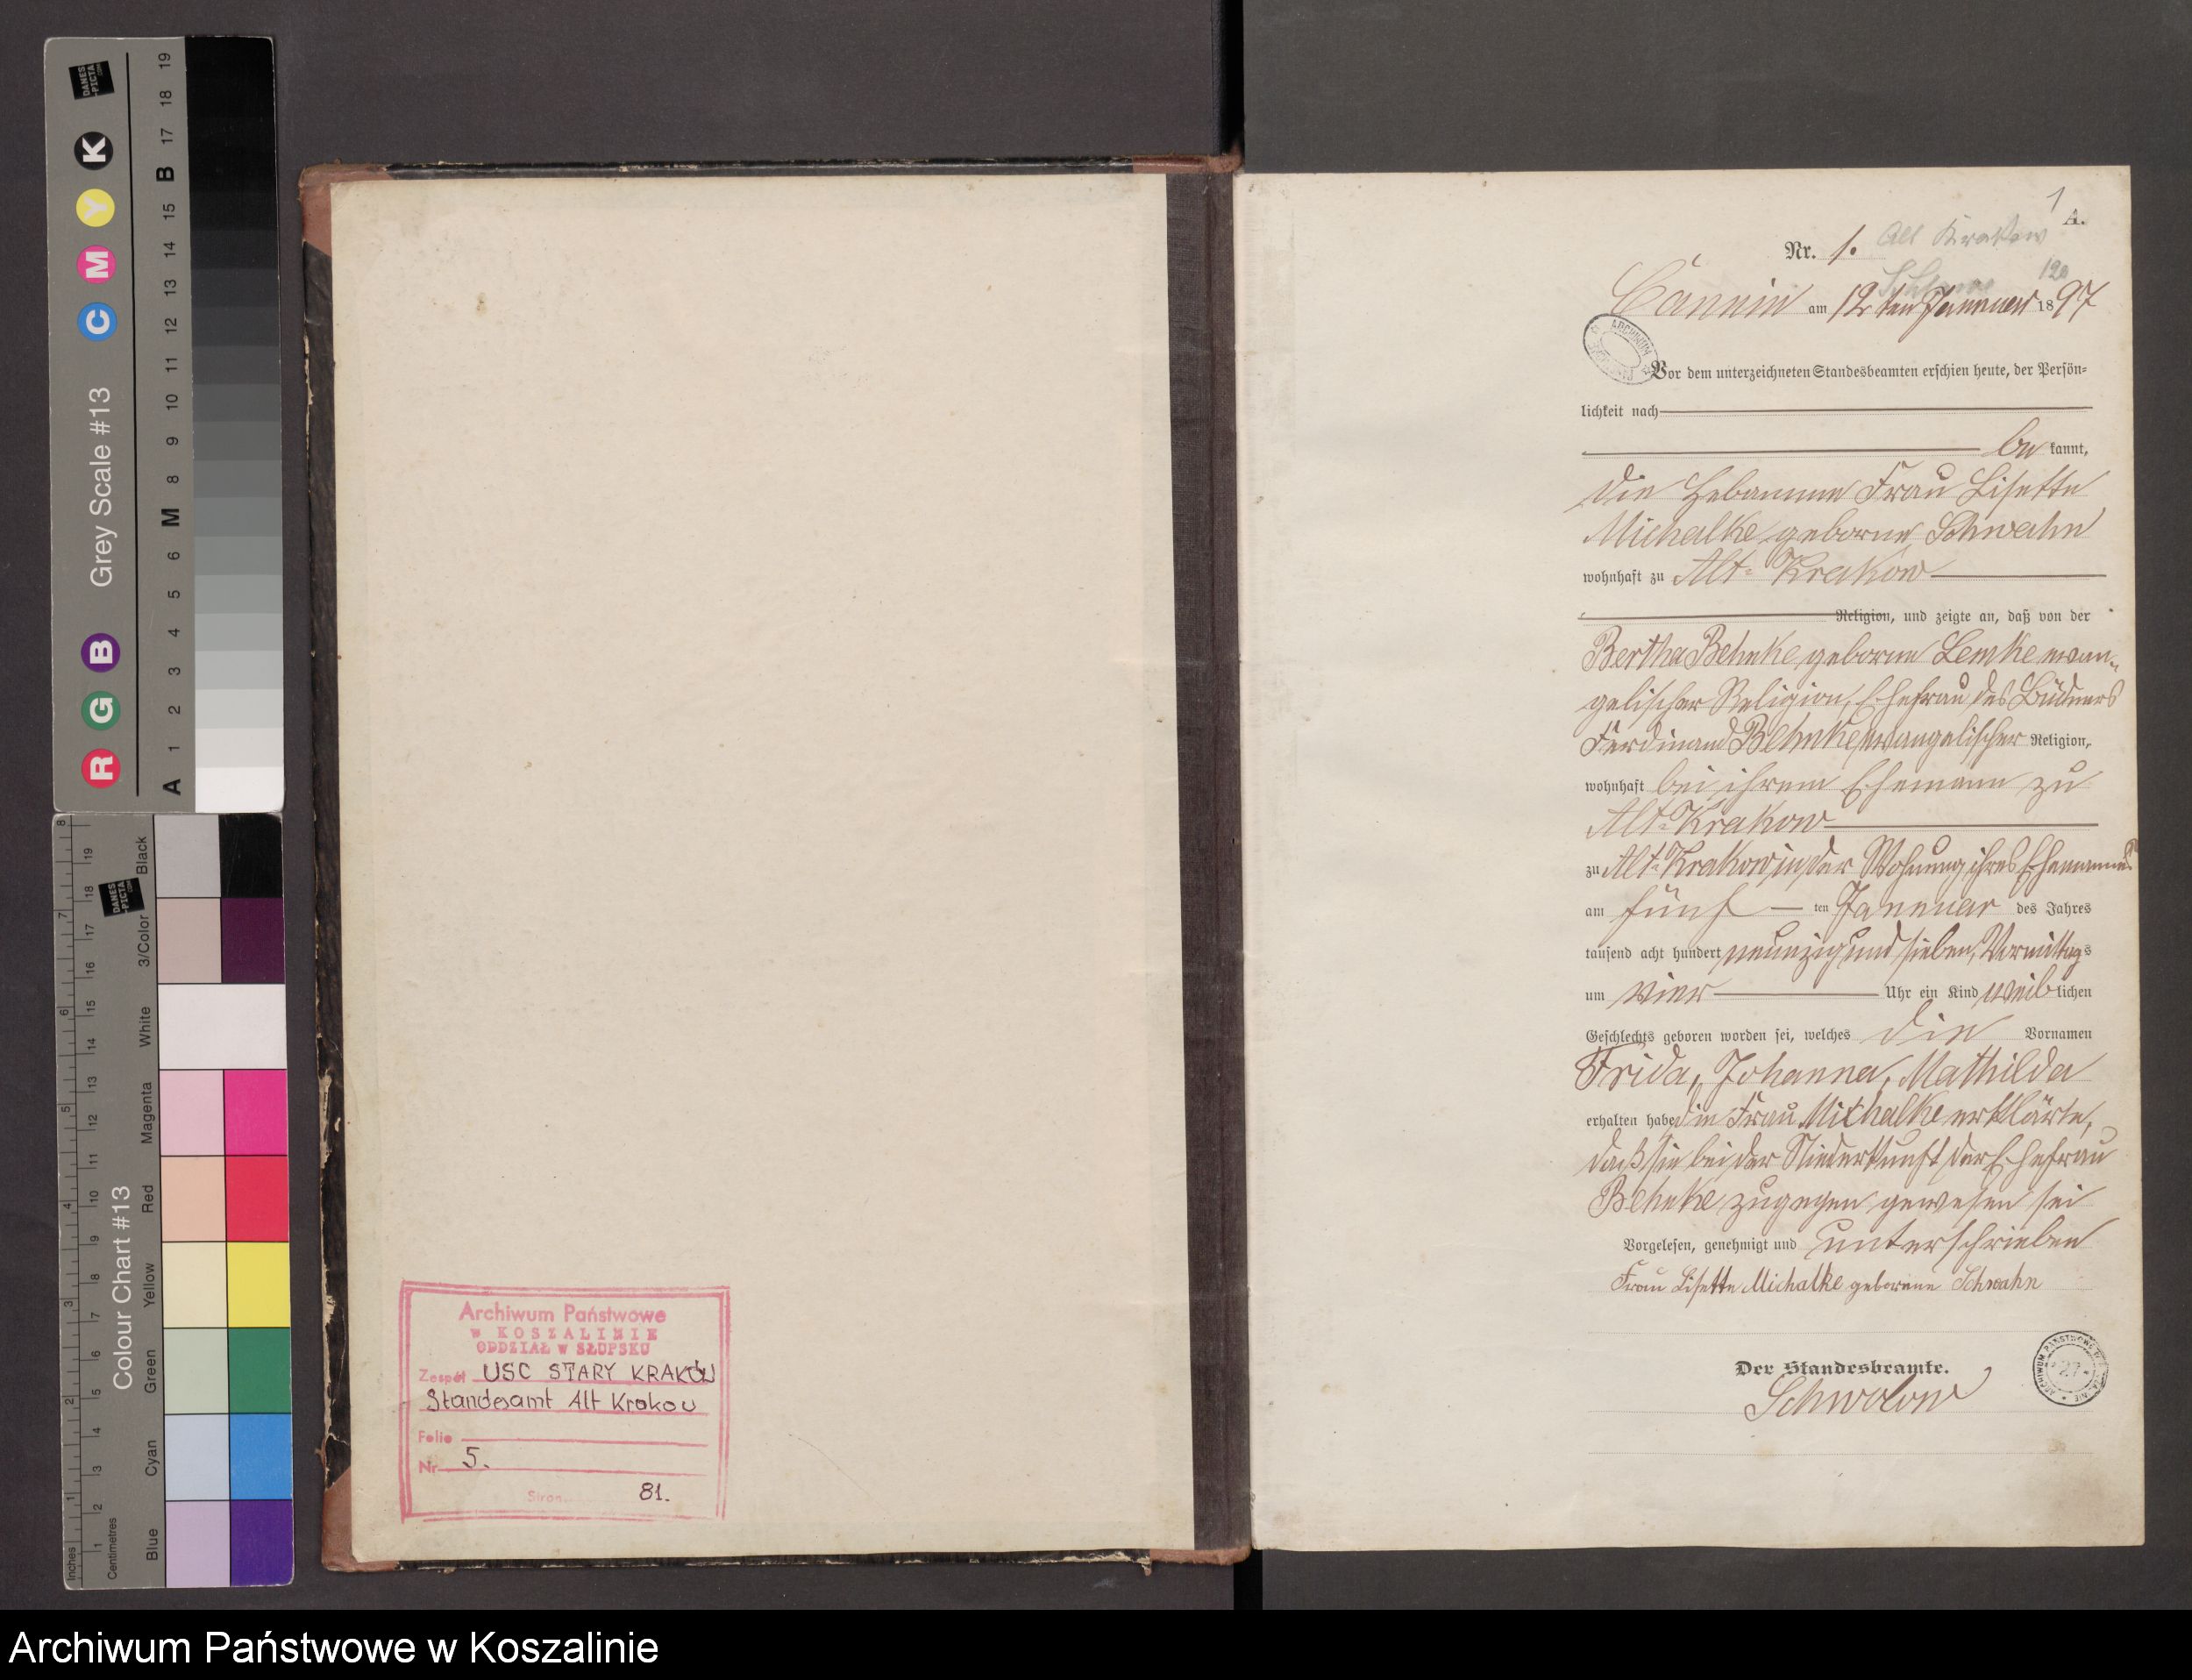 DANES
PICTA
.COM
Grey Scale #13
R G B C M Y K
A 1 2 3 4 5 6 M 8 9 10 11 12 13 14 15 B 17 18 19
Colour Chart #13
Blue Cyan Green Yellow Red Magenta White 3/Color Black
Inches 1 2 3 4 5 6 7 8
Centimetres 1 2 3 4 5 6 7 8 9 10 11 12 13 14 15 16 17 18 19
DANES
PICTA
.COM
Archiwum Państwowe
W KOSZALINIE
ODDZIAŁ W SŁUPSKU
Zespół USC STARY KRAKÓW
Standesamt Alt Krakow
Folio
Nr 5.
Stron 81.
1
A.
Nr. 1. Alt Krakow
120
Cannin am 12ten Januar 1897
ARCHIWUM
Vor dem unterzeichneten Standesbeamten erschien heute, der Persön-
lichkeit nach
be kannt,
die Hebamme Frau Lisette
Michalke geborne Schwahn
wohnhaft zu Alt-Krakow
Religion, und zeigte an, daß von der
Bertha Behnke geborne Lemke evan-
gelischer Religion, Ehefrau des Büdners
Ferdinand Behnke, evangelischer Religion,
wohnhaft bei ihrem Ehemann zu
Alt-Krakow
zu Alt-Krakow in der Wohnung ihres Ehemannes
am fünf ten Januar des Jahres
tausend acht hundert neunzig und sieben, Vormittags
um vier Uhr ein Kind weiblichen
Geschlechts geboren worden sei, welches die Vornamen
Frida, Johanna, Mathilda
erhalten habe, die Frau Michalke erklärte,
daß sie bei der Niederkunft der Ehefrau
Behnke zugegen gewesen sei
Vorgelesen, genehmigt und unterschrieben
Frau Lisette Michalke geborene Schwahn
Der Standesbeamte.
Schwolow
ARCHIWUM PAŃSTWOWE
27
Archiwum Państwowe w Koszalinie